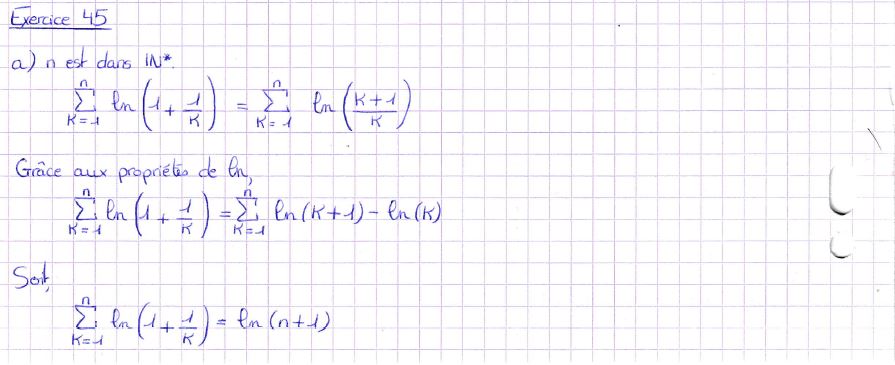 Exercice 45
a) n est dans IN*.
n∑K=1 ln(1 + 1/K) = n∑K=1 ln((K+1)/K)
Grâce aux propriétés de ln,
n∑K=1 ln(1 + 1/K) = n∑K=1 ln(K+1) - ln(K)
Soit,
n∑K=1 ln(1 + 1/K) = ln(n+1)